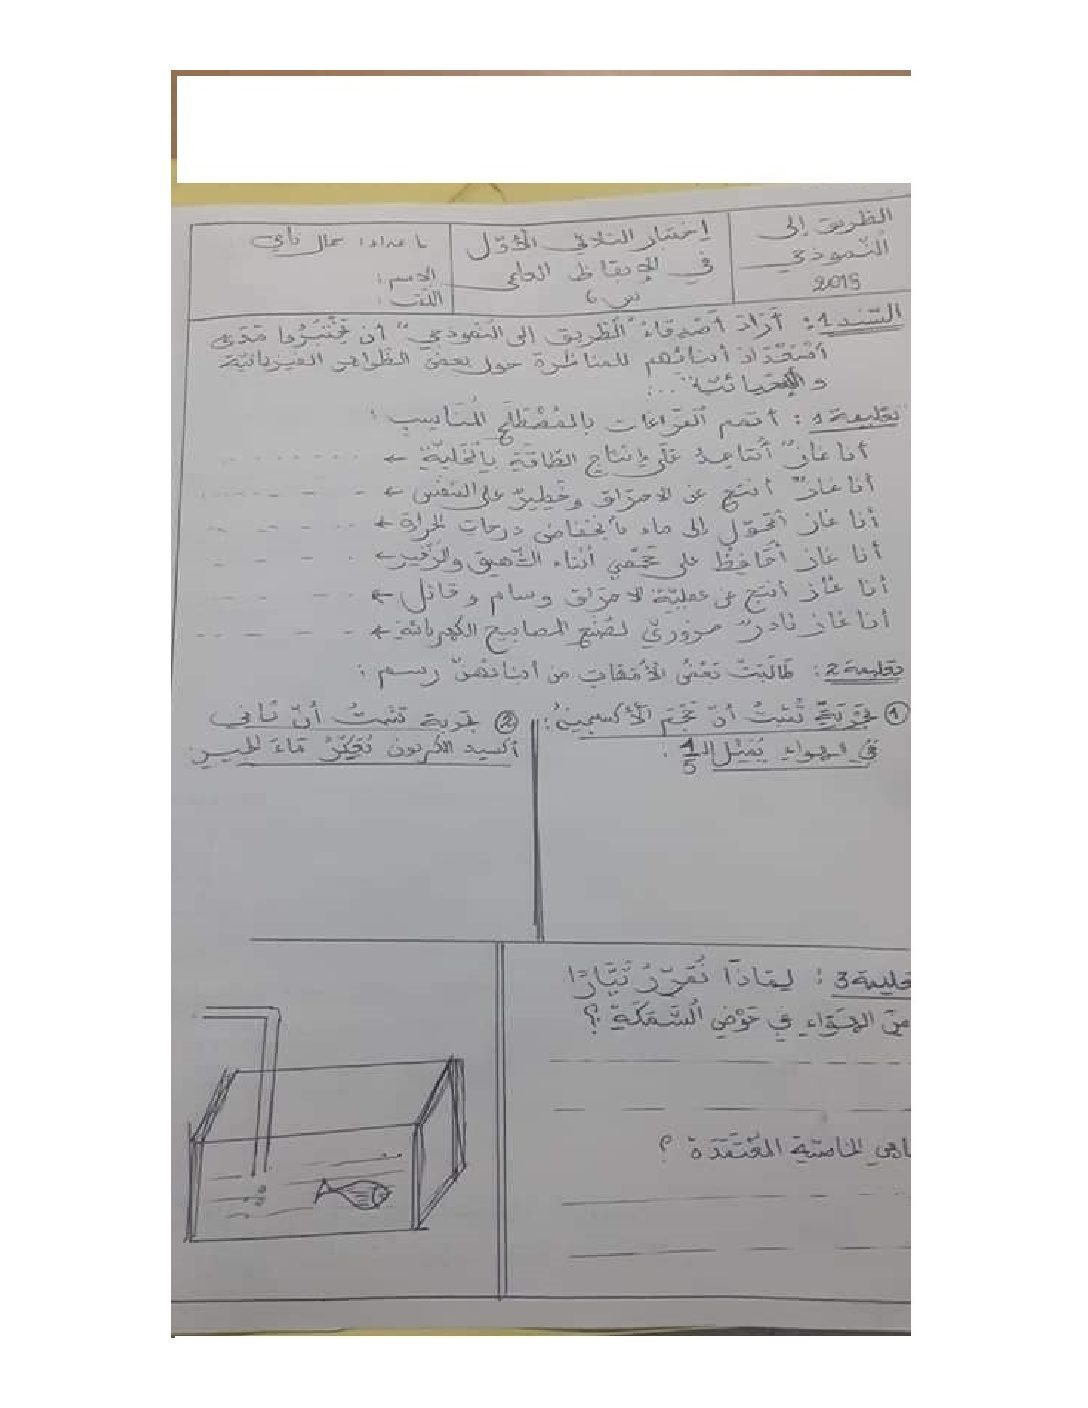 الطريق إلى
النموذجي
2019
إختبار الثلاثي الأوّل
في الإيقاظ العلمي
س 6
الاسم :
اللقب :
السّند 1 : أرَادَ أَصْدِقَاءُ "الطّريق إلى النّموذجي" أن يَخْتَبِرُوا مَدَى
اسْتِعْدَادَ أبنائهم للمناظرة حول بعض الظواهر الفيزيائيّة
و الإحيائيّة ...
تعليمة 1 : أتمم الفراغات بالمُصْطَلَحِ المُنَاسِبِ :
أنا غازٌ أُسَاعِدُ عَلَى إِنْتَاجِ الطَّاقَةِ بِالخَلِيَّةِ ←
أنا غازٌ أنتج عن الاحتراق وخطيرٌ على التنفّس ←
أنا غاز أتحوّل إلى ماء بانخفاض درجات الحرارة ←
أنا غاز أحَافِظُ على حَجْمِي أثناء الشّهيق والزّفير ←
أنا غَاز أنتج عن عمليّة الاحتراق وسام وقاتل ←
أنا غاز نادرٌ ضروريّ لصُنْعِ المصابيح الكهربائيّة ←
تعليمة 2 : طَالَبَتْ بَعْضُ الأمّهات من أبنائهنّ رسم :
① تَجْرِبَةً تُثْبِتُ أنّ حَجْمَ الأكسيجينُ
في الهواء يُمَثِّلُ الـ 1/5 :
② تجربة تثبتُ أنّ ثاني
أكسيد الكربون يُعَكِّرُ مَاءَ الجير :
تعليمة 3 : لِمَاذَا نُمَرِّرُ تَيَّارًا
مِنَ الهَوَاءِ فِي حَوْضِ السَّمَكَةِ ؟
ماهي الخاصّية المُعْتَمَدَة ؟